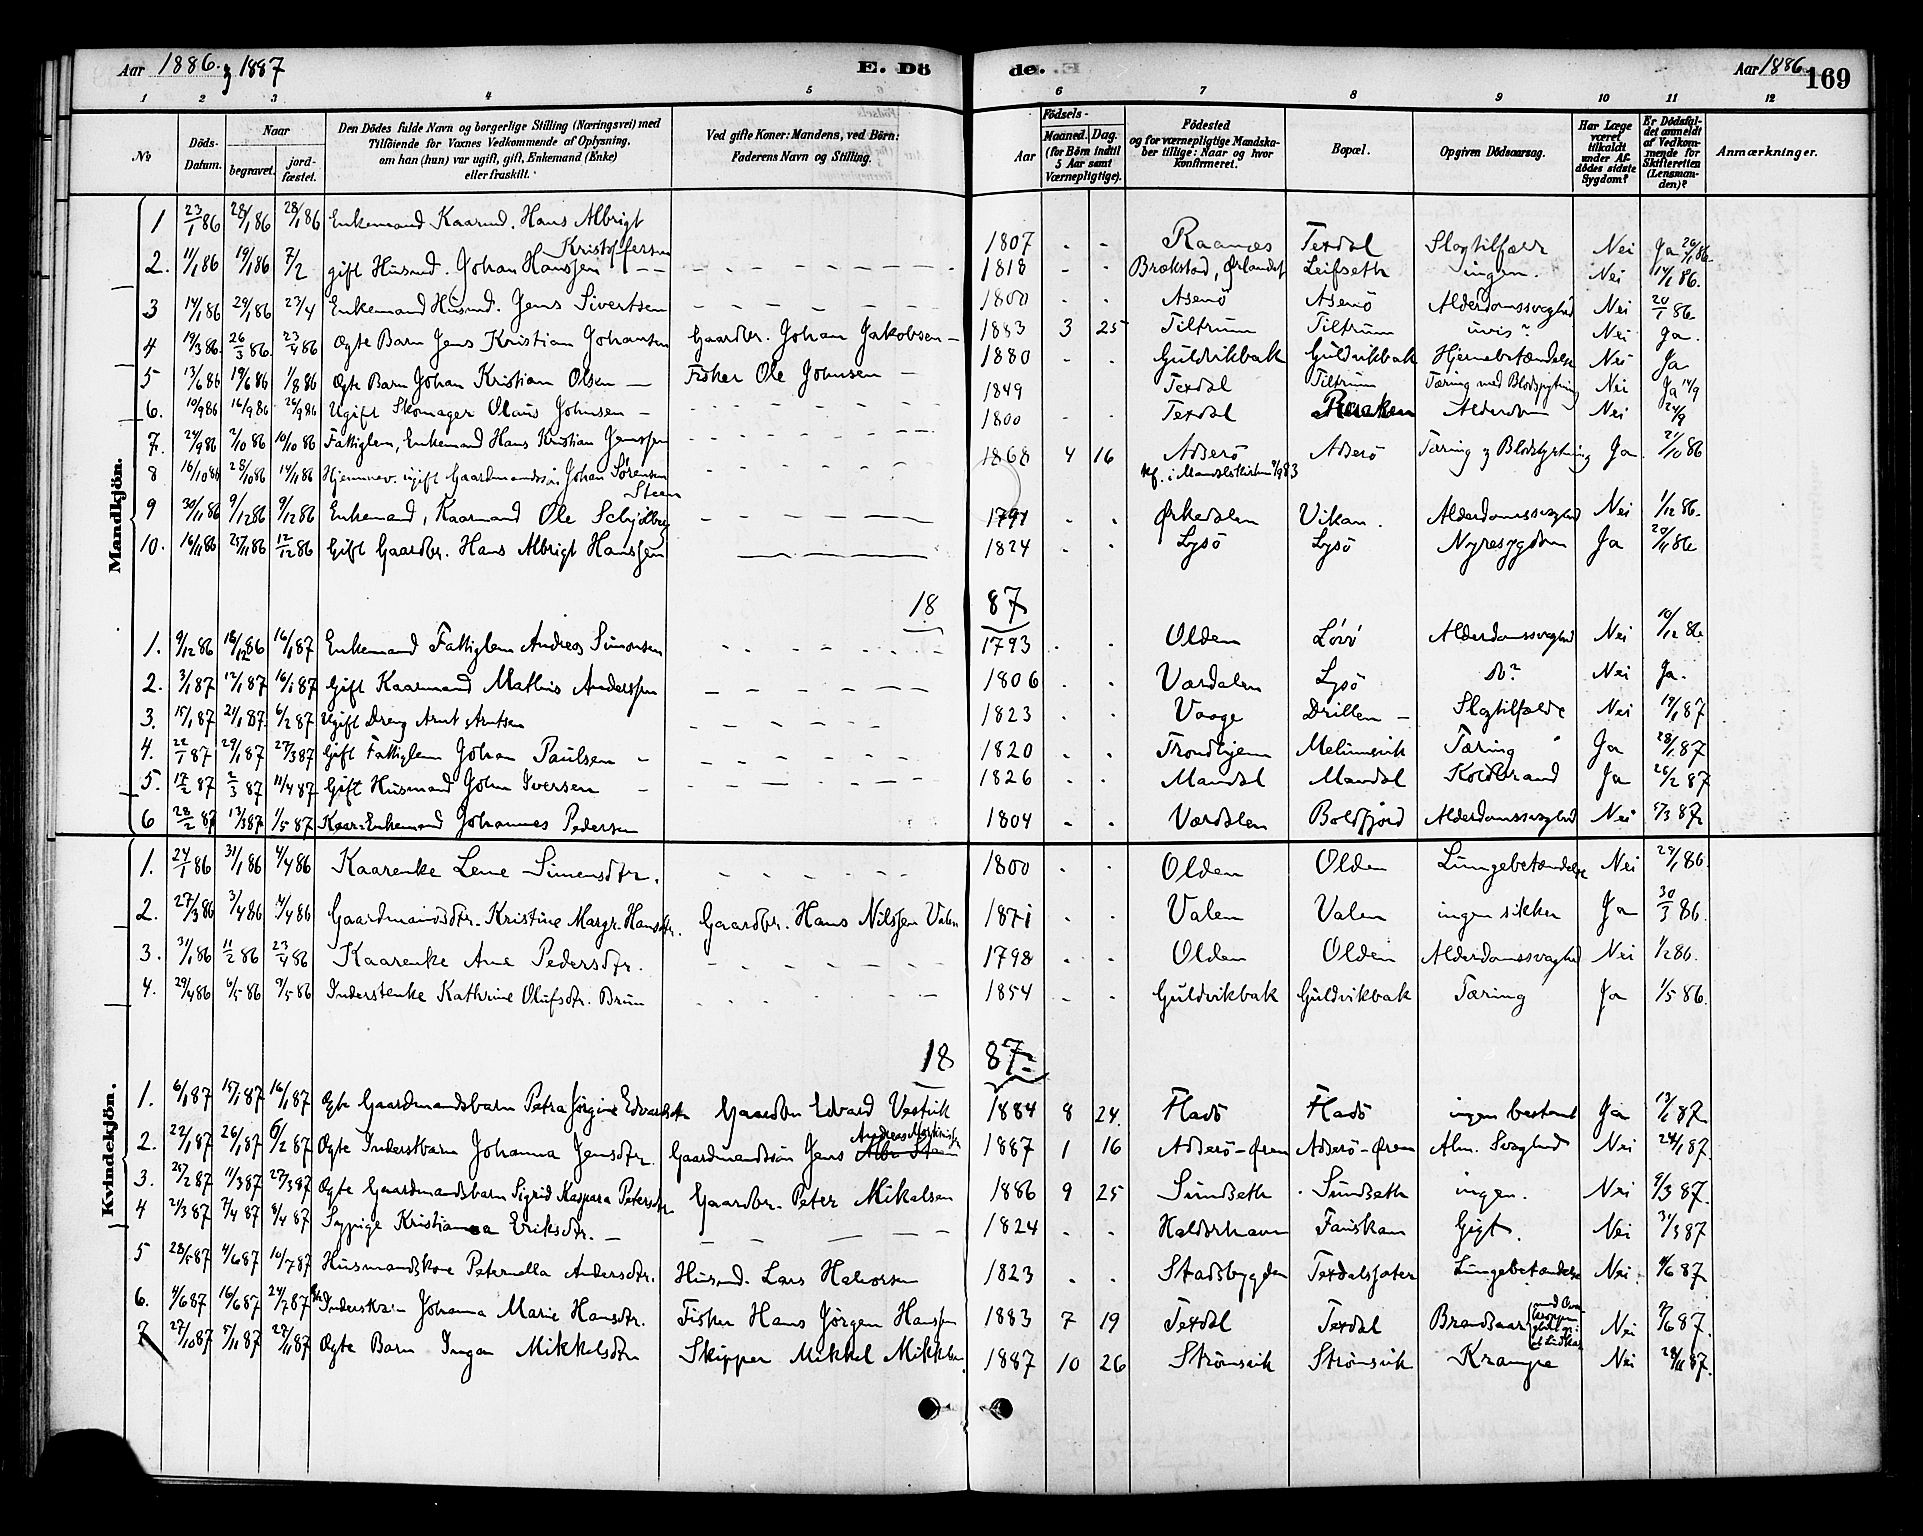 Aar 1886 & 1887 E. Dö de. Aar 1886 169
1 2 3 4 5 6 7 8 9 10 11 12
No Döds-Datum. Naar begravet. jord-fæstet. Den Dödes fulde Navn og borgerlige Stilling (Næringsvei) med Tilföiende for Voxnes Vedkommende af Oplysning, om han (hun) var ugift, gift, Enkemand (Enke) eller fraskilt. Ved gifte Koner: Mandens, ved Börn: Faderens Navn og Stilling. Födsels- Aar Maaned. Dag. (for Börn indtil 5 Aar samt Værnepligtige). Födested og for værnepligtige Mandskaber tillige: Naar og hvor konfirmeret. Bopæl. Opgiven Dödsaarsag. Har Læge været tilkaldt under Afdödes sidste Sygdom? Er Dödsfaldet anmeldt af Vedkommende for Skifteretten (Lensmanden)? Anmærkninger.
Mandkjön.
1 23/1 86 28/1 86 28/1 86 Enkemand Kaarmd. Hans Albrigt Kristoffersen 1807 - - Raanæs Texdal Slagtilfælde Nei Ja 26/1 86.
2. 11/1 86 19/1 86 7/2 gift Husmd. Johan Hanssen 1818 - - Brækstad, Ørlandet Leifseth ingen. Nei 14/1 86.
3 14/1 86 29/1 86 23/4 Enkemand Husmd. Jens Sivertsen 1800 - - Asenö Asenö Alderdomssvaghed Nei 20/1 86
4 19/3 86. 26/3 86. 23/4 86 Ægte Barn Jens Kristian Johansen Gaardbr. Johan Jakobsen 1883 3 25 Tiltrum Tiltrum uvis? Nei Ja.
5 13/6 86 19/6 86 1/8 86 Ægte Barn Johan Kristian Olsen Fisker Ole Johnsen 1880 - - Guldvikbak Guldvikbak Hjernebetændelse Nei Ja
6. 10/9 86 16/9 86 26/9 86 Ugift Skomager Olaus Johnsen 1849 Texdal Tiltrum Tæring med Blodspytning Nei Ja 14/9
7. 24/9 86 2/10 86 10/10 86 Fattiglem, Enkemand Hans Kristian Jenssen 1800 - - Texdal Raaken Alderdom Nei 24/9
8 16/10 86 28/10 86 14/11 86 Hjemmev. ugift Gaardmandssön Johan Sörensen Steen 1868 4 16 Adserö Kf. i Mandalskirken 1883 Adserö Tæring & Blodstyrtning Ja 21/10 86
9 30/11 86 9/12 86 9/12 86 Enkemand, Kaarmand Ole Schjölberg 1791 - - Ørkedalen Vikan. Alderdomssvaghed Nei 1/12 86.
10. 16/11 86 25/11 86 12/12 86 Gift Gaardbr. Hans Albrigt Hanssen 1824 - - Lysö Lysö Nyresygdom Ja 20/11 86
18 87
1. 9/12 86 16/12 86 16/1 87 Enkemand Fattiglem Andreas Simonsen 1793 - - Olden Lövö Alderdomssvaghed Nei 10/12 86.
2. 3/1 87 12/1 87 16/1 87 Gift Kaarmand Mathis Anderssen 1806 - - Værdalen Lysö Do? Nei Ja.
3. 15/1 87 21/1 87. 6/2 87 Ugift Dreng Arnt Arntsen 1823 - - Vaage Drillen Slagtilfælde Nei 19/1 87
4. 22/1 87 29/1 87 27/3 87 Gift Fattiglem Johan Paulsen 1820 - - Trondhjem Melumsvik Tæring Ja 28/1 87
5. 17/2 87 2/3 87 11/4 87 Gift Husmand John Iversen 1826 - - Mandal Mandal Koldbrand Ja 26/2 87
6 28/2 87 13/3 87 1/5 87 Kaar-Enkemand Johannes Pedersen 1804 - - Værdalen Boldfjord Alderdomssvaghed Nei 5/3 87.
Kvindekjön.
1. 24/1 86 31/1 86 4/4 86 Kaarenke Lene Simensdtr. 1800 - - Olden Olden Lungebetændelse Nei 29/1 86.
2. 27/3 86 3/4 86 4/4 86 Gaardmandsdtr. Kristine Margr. Hansdtr. Gaardbr. Hans Nilssen Valen 1871 - - Valen Valen ingen sikker Ja 30/3 86.
3. 31/1 86 11/2 86 23/4 86 Kaarenke Ane Pedersdtr. 1798 - - Olden Olden Alderdomssvaghed Nei 1/2 86.
4. 29/4 86 6/5 86 9/5 86 Inderstenke Kathrine Olufsdtr. Brun 1854 - - Guldvikbak Guldvikbak Tæring Ja 1/5 86.
18 87
1. 6/1 87 15/1 87 16/1 87 Ægte Gaardmandsbarn Petra Jörgine Edvardsdtr Gaardbr Edvard Vestvik 1884 8 24. Fladö Fladö ingen bestemt Ja 13/1 87
2. 22/1 87 26/1 87 6/2 87 Ægte Inderstbarn Johanna Jensdtr. Gaardmandssön Jens 1887 1 16 Adserö-Øren Adserö-Øren Alm. Svaghed Nei 24/1 87
3. 25/2 87 11/3 87 27/3 87 Ægte Gaardmandsbarn Sigrid Kaspara Petersdtr Gaardbr. Peter Mikalsen 1886 9 25 Sundseth Sundseth ingen. Nei 9/3 87.
4 24/3 87 2/4 87 8/4 87 Sypige Kristianna Eriksdtr. 1824 - - Haldorhavn Fauskan Gigt. Nei 31/3 87
5 28/5 87 4/6 87 10/7 87 Husmandskone Peternella Andersdtr. Husmd. Lars Halvorsen 1823 - - Stadsbygden Texdalssæter Lungebetændelse Nei 4/6 87
6. 4/6 87 16/6 87 24/7 87 Inderstbarn Johanna Marie Hansdtr. Fisker Hans Jörgen Hanssen 1883 7 19 Texdal Texdal Brandsaar Nei 7/6 87.
7 27/10 87 5/11 87 28/11 87 Ægte Barn Inga Mikkelsdtr Skipper Mikkel Mikkelsen 1887 10 26 Strömsvik Strömsvik Krampe Nei 28/11 87.